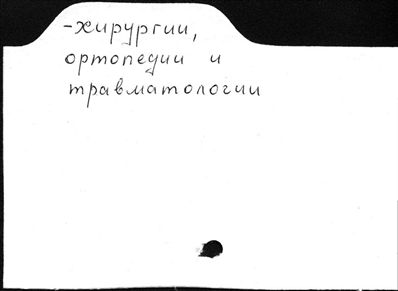 -хирургии,
ортопедии и
травматологии